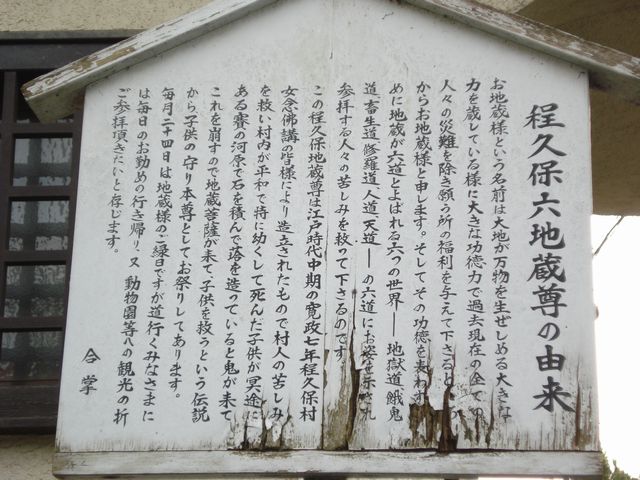 程久保六地蔵尊の由来
お地蔵様という名前は大地が万物を生ぜしめる大きな
力を蔵している様に大きな功徳力で過去現在の全ての
人々の災難を除き願う所の福利を与えて下さる
からお地蔵様と申します。そしてその功徳を表わす
めに地蔵が六道とよばれる六つの世界――地獄道餓鬼
道、畜生道、修羅道、人道、天道――の六道にお姿を示され
参拝する人々の苦しみを救って下さるのです
この程久保地蔵尊は江戸時代中期の寛政七年程久保村
女念佛講の皆様により造立されたもので村人の苦しみ
を救い村内が平和で特に幼くして死んだ子供が冥途に
ある賽の河原で石を積んで塔を造っていると鬼が来て
これを崩すので地蔵菩薩が来て子供を救うという伝説
から子供の守り本尊としてお祭りしてあります。
毎月二十四日は地蔵様のご縁日ですが道行くみなさまに
は毎日のお勤めの行き帰り、又動物園等への観光の折
ご参拝頂きたいと存じます。
合掌